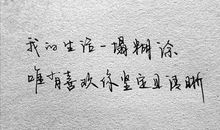 我的生活一塌糊涂
唯有喜欢你坚定且清晰